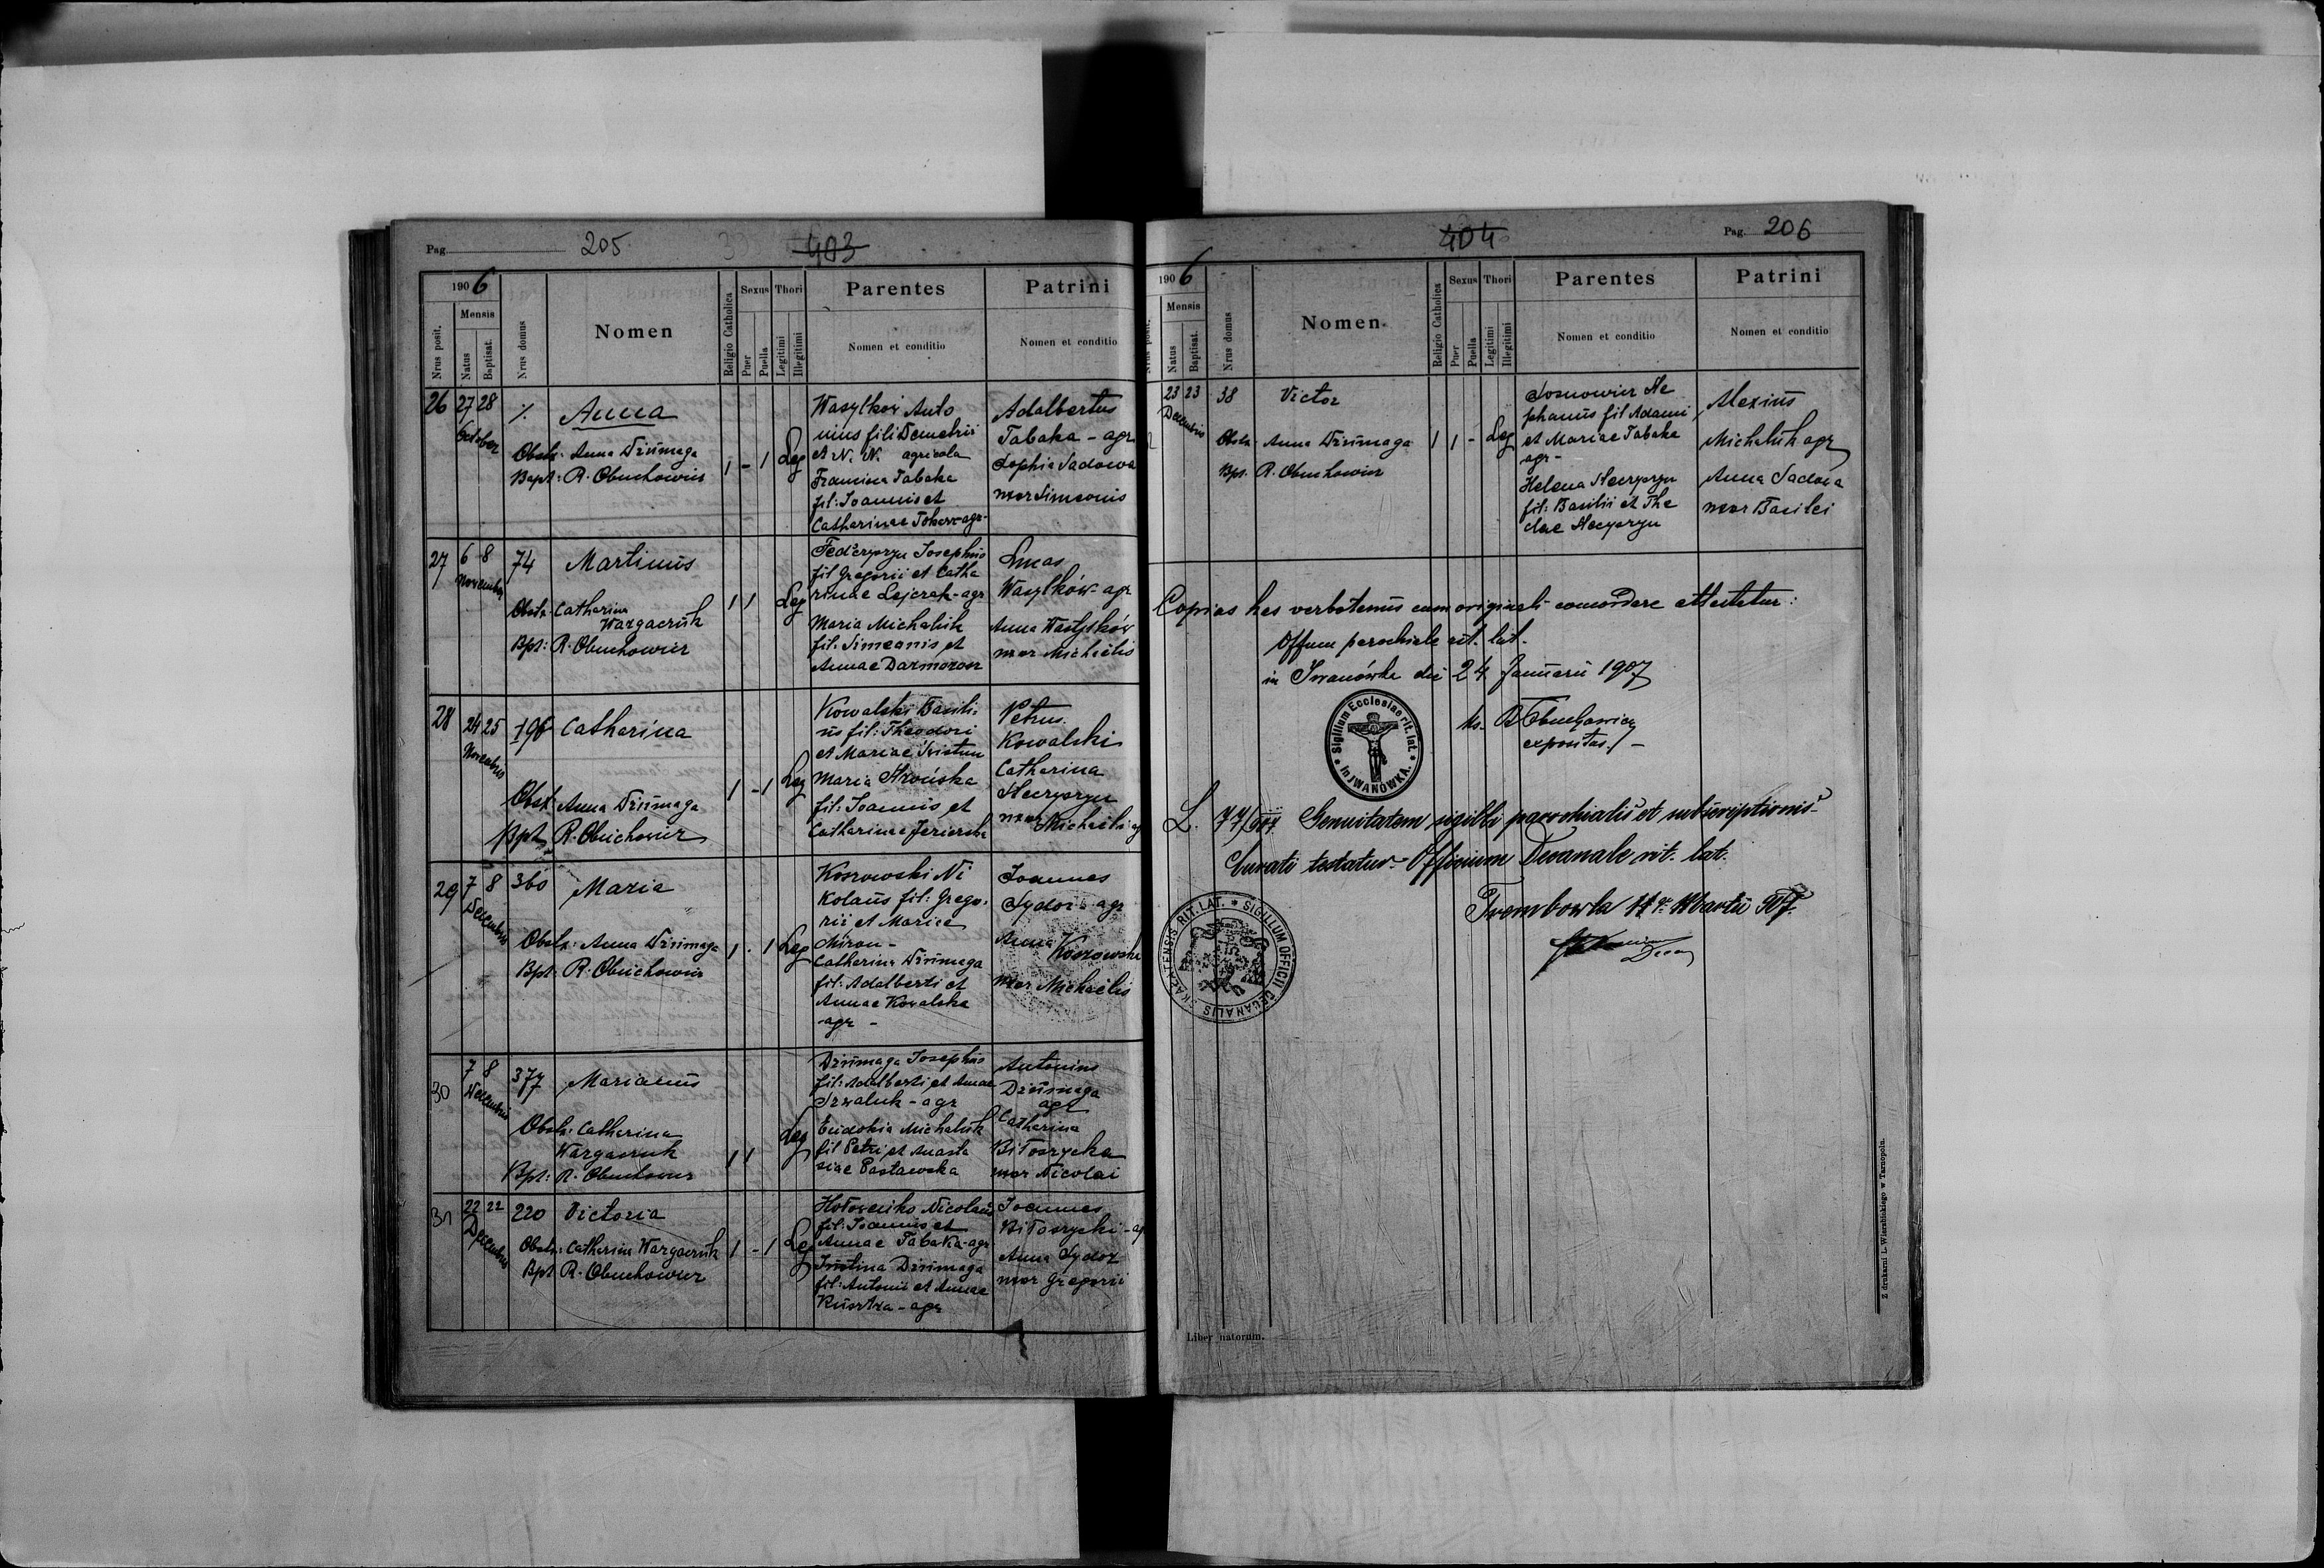 Pag. 205 403
1906
Nrus posit.
Mensis
Natus
Baptisat.
Nrus domus
Nomen
Religio Catholica
Sexus
Puer
Puella
Thori
Legitimi
Illegitimi
Parentes
Nomen et conditio
Patrini
Nomen et conditio
26 27 28 October
Anna
Obstx: Anna Dziumaga
Bapt: R. Obuchowicz
1 - 1 Leg
Wasylków Anto
nius fil: Demetrii
et N. N. agricola
Francisca Tabaka
fil: Joannis et
Catharinae Tokarz-agr-
Adalbertus
Tabaka - agr
Sophia Sadowa
uxor Simeonis
27 6 8 November 74
Martinus
Obstx: Catharina
Wargaczuk
Bpt: R. Obuchowicz
1 1 Leg
Josephus
fil Gregorii et Catha
rinae Lejczak-agr
Maria Michaluk
fil: Simeonis et
Annae Darmorosz
Lucas
Wasylków-agr
Anna Wasylków
uxor Michaelis
28 24 25 Novembris 198
Catharina
Obstx: Anna Dziumaga
Bpt R. Obuchowicz
1 - 1 Leg
Kowalski Basili
us fil: Theodori
et Mariae
Maria
fil: Joannis et
Catharinae Jezierska
Petrus
Kowalski
Catharina
uxor Michaelis
29 7 8 Decembris 360
Maria
Obstx: Anna Dziumaga
Bpt: R. Obuchowicz
1 - 1 Leg
Koszowski Ni
kolaus fil: Grego
rii et Mariae
Miron -
Catharina Dziumaga
fil: Adalberti et
Annae Kowalska
agr -
Joannes
Sydor - agr
Anna Koszowska
uxor Michaelis
30 7 8 Decembris 377
Marianus
Obstx: Catharina
Wargaczuk
Bpt: R. Obuchowicz
1 1 Leg
Dziumaga Josephus
fil: Adalberti et Annae
agr
Eudokia Michaluk
fil Petri et Anasta
siae Pastawska
Antonius
Dziumaga
agr
Catharina
Biłoszycka
uxor Nicolai
31 22 22 Decembris 220
Victoria
Obstx: Catharina Wargaczuk
Bpt R. Obuchowicz
1 - 1 Leg
Hołowenko Nicolaus
fil: Joannis et
Annae Tabaka-agr
Justina Dziumaga
fil: Antonii et Annae
agr
Joannes
Biłoszycki - agr
Anna Sydor
uxor Gregorii
404 Pag. 206
1906
Nrus posit.
Mensis
Natus
Baptisat.
Nrus domus
Nomen
Religio Catholica
Sexus
Puer
Puella
Thori
Legitimi
Illegitimi
Parentes
Nomen et conditio
Patrini
Nomen et conditio
23 23 Decembris 38
Victor
Obstx: Anna Dziumaga
Bpt. R. Obuchowicz
1 1 - Leg
Sosnowicz Ste
phanus fil Adami
et Mariae Tabaka
agr -
Helena
fil: Basilii et The
clae
Alexius
Michaluk agr
Anna Sadowa
uxor Basilei
Copias has verbotenus cum originali concordare attestatur:
Offium parochiale rit. lat.
in Iwanówka die 24 Januarii 1907
Sigillum Ecclesiae rit. lat. in IWANÓWKA.
expositus
L. 77/907 Genuitatem sigilli parochialis et subscriptionis
Curati testatur Officium Decanale rit. lat.
Trembowla Martii 907.
SIGILLUM OFFICII DECANALIS SKALATENSIS RIT. LAT.
Liber natorum.
Z drukarni L. Wierzbickiego w Tarnopolu.